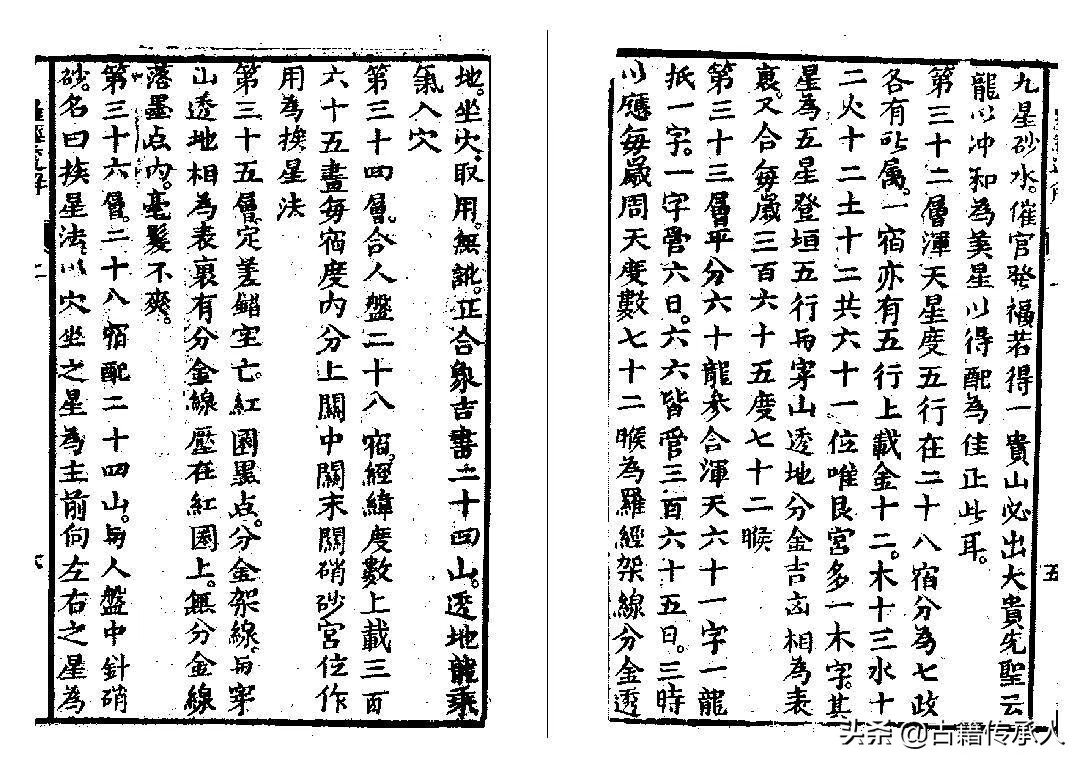 九星砂水。催官發福若得一貴山必出大貴先聖云
龍以冲和為美星以得配為佳正此耳。
第三十二層渾天星度五行在二十八宿分為七政
各有所属。一宿亦有五行上載金十二。木十三水十
二火十二土十二共六十一位唯艮宮多一木字。其
星為五星登垣五行与穿山透地分金吉凶相為表
裏。又合每歲三百六十五度七十二候
第三十三層平分六十龍参合渾天六十一字一龍
抵一字。一字管六日。六六皆管三百六十五日。三時
以應每歲周天度數七十二候為羅經架線分金透
地。坐穴。取用。無訛。正合象吉書二十四山。透地龍乘
氣入穴
第三十四層。合人盤二十八宿。經緯度數上載三百
六十五畫每宿度内分上關中關末關硝砂宮位作
用為挨星法
第三十五層。定差錯空亡。紅圈黑点。分金架線。与穿
山透地相為表裏有分金線壓在紅圈上。無分金線
落墨点内。毫髮不爽。
第三十六層。二十八宿配二十四山。与人盤中針硝
砂。名曰挨星法以穴坐之星為主前向左右之星為
五
头条 @古籍传承人